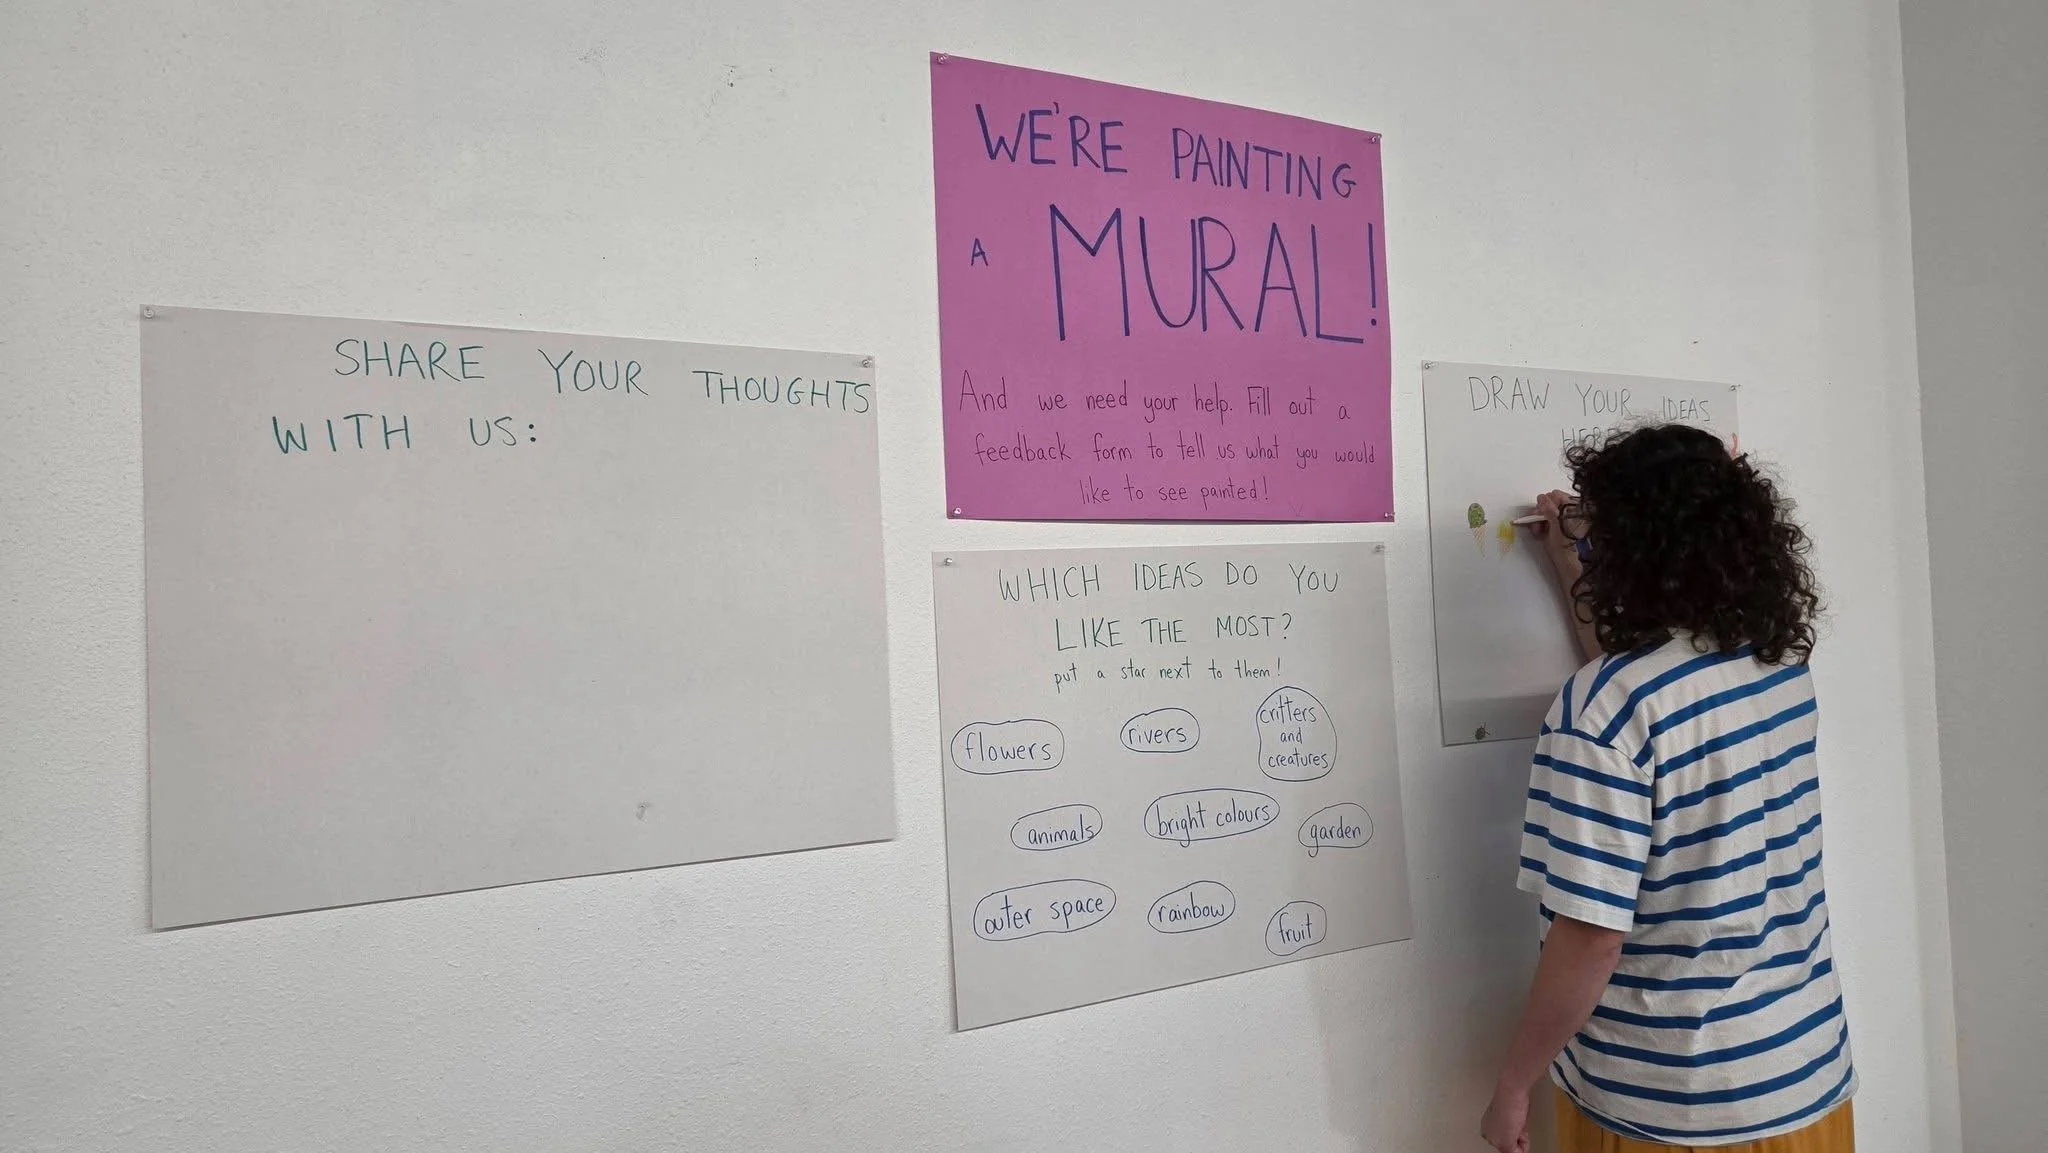 SHARE YOUR THOUGHTS
WITH US:
WE'RE PAINTING
A MURAL!
And we need your help. Fill out a
feedback form to tell us what you would
like to see painted!
WHICH IDEAS DO YOU
LIKE THE MOST?
put a star next to them!
flowers
rivers
critters
and
creatures
animals
bright colours
garden
outer space
rainbow
fruit
DRAW YOUR IDEAS